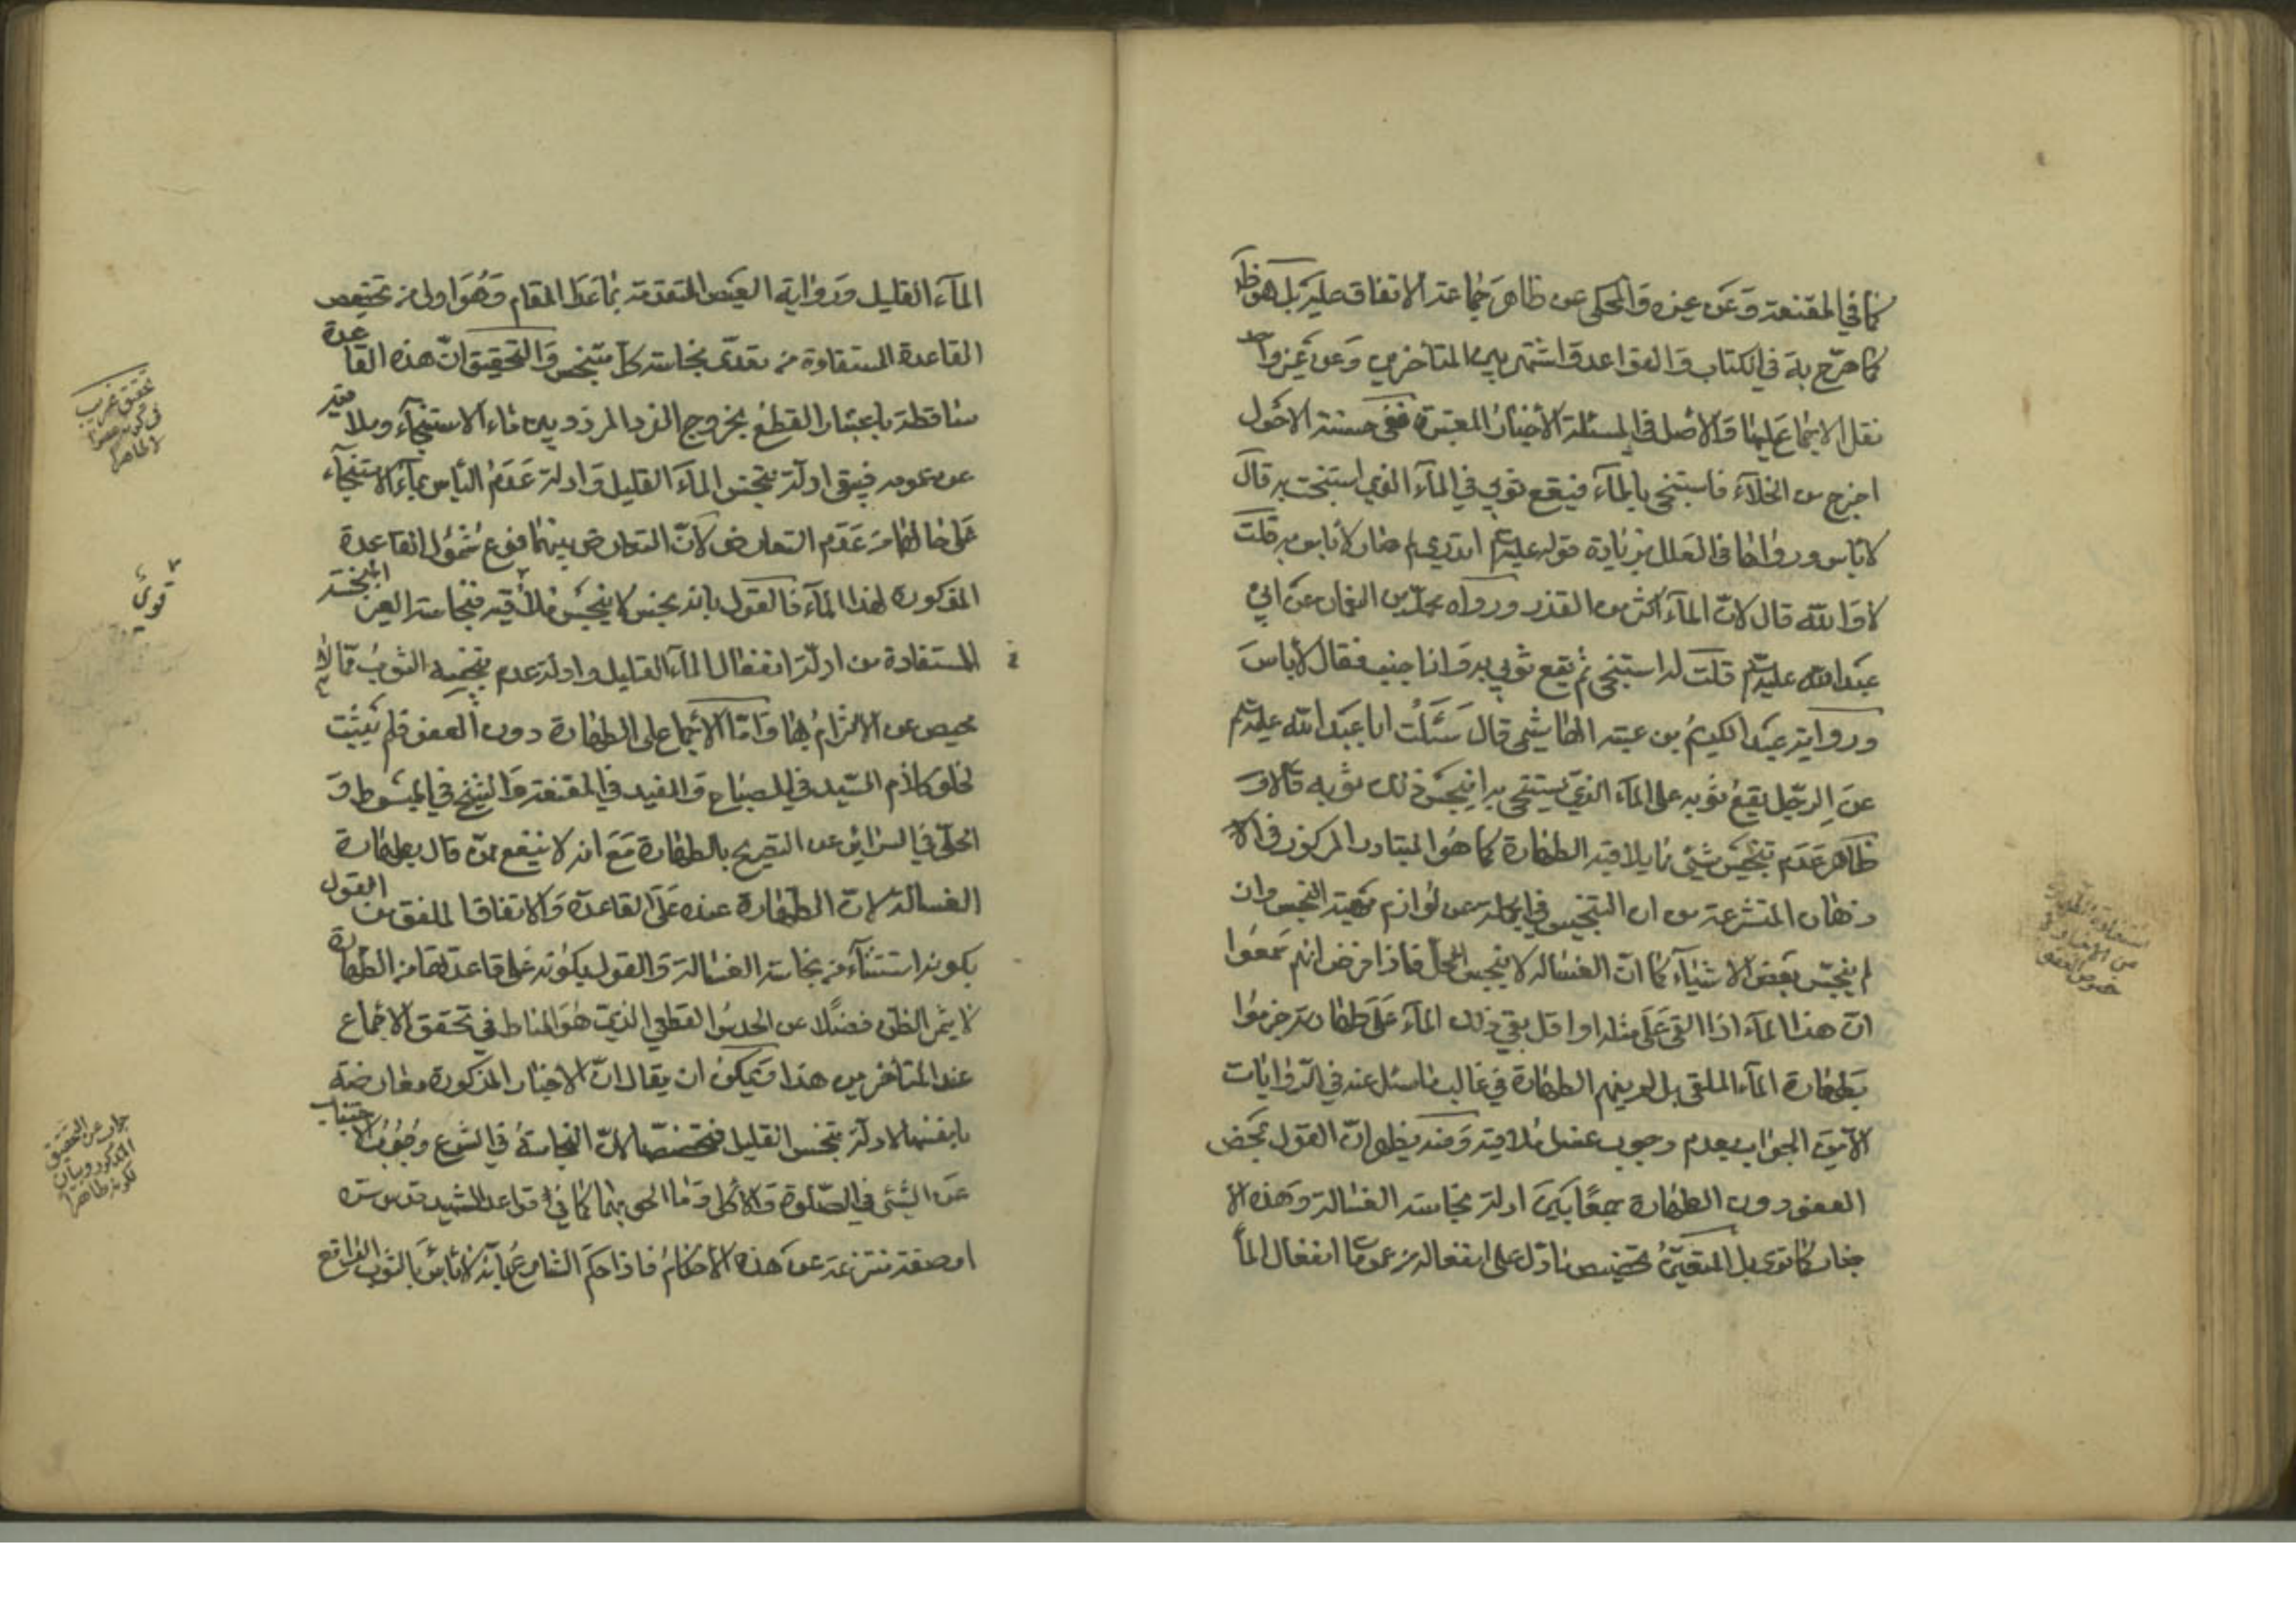 كما في المقنعة وعن غيره والمحكى عن ظاهر جماعة الاتفاق عليه بل هو ظ
كما صرّح به في الكتاب والقواعد واشتهر بين المتاخرين وعن غير واحد
نقل الاجماع عليها والاصل في المسئلة الأخبار المعتبرة ففي حسنة الاحول
اخرج من الخلاء فاستنجى بالماء فيقع ثوبي في الماء الذي استنجيت به قال
لا باس ورواها في العلل بزيادة قوله عليه السلم اتدري لم صار لا باس به قلت
لا والله قال لانّ الماء اكثر من القذر ورواه محمّد بن النعمان عن ابي
عبد الله عليه السلم قلت له استنجى ثم يقع ثوبي به وانا جنب فقال لا باس
ورواية عبد الكريم بن عتبة الهاشمي قال سئلت ابا عبد الله عليه السلم
عن الرجل يقع ثوبه على الماء الذي يستنجى به اينجس ذلك ثوبه قال لا و
ظاهر عدم تنجيس شيئ لما يلاقيه الطهارة كما هو المتبادر المركوز في الا
ذهان المتشرعة من ان التنجيس في الجملة من لوازم مهية النجس وان
لم ينجّس بعض الاشياء كما انّ الغسالة لا ينجس المحل فاذا فرض انهم سمعوا
انّ هذا الماء اذا القى على مثله او اقل بقي ذلك الماء على طهارته جزموا
بطهارة الماء الملقى بل لم يفهم الطهارة في غالب ما سئل عنه في الروايات
الا من الجواب بعدم وجوب غسل ملاقيه ومنه يظهر انّ القول بمحض
العفو دون الطهارة جمعًا بين ادلة نجاسة الغسالة وهذه الا
خبار كما ترى بل المتعيّن تخصيص ما دل على انفعاله من عمومات انفعال الماء
استفادة الطهارة
من الاخبار لا
خصوص العفو
الماء القليل ورواية العيص المتقدمة بما عدا المقام وهو اولى من تخصيص
القاعدة المستفادة من تعدّى نجاسة كل متنجس والتحقيق انّ هذه القاعدة
ساقطة باعتبار القطع بخروج الفرد المردد بين ماء الاستنجاء وملاقيه
عن عمومه فيبقى ادلة تنجس الماء القليل وادلة عدم الباس بماء الاستنجاء
على حالهما من عدم التعارض لانّ التعارض بينهما فرع شمول القاعدة
المذكورة لهذا الماء فالقول بانه نجس لا ينجس ملاقيه فنجاسته العين النجسة
المستفادة من ادلة انفعال الماء القليل وادلة عدم تنجيسه الثوب ممّا لا
محيص عن الالتزام بها وامّا الاجماع على الطهارة دون العفو فلم يثبت
لخلو كلام السّيد في المصباح والمفيد في المقنعة والشيخ في المبسوط و
الحلّي في السرائر عن التصريح بالطهارة مع انه لا ينفع ممّن قال بطهارة
الغسالة لانّ الطهارة عنده على القاعدة والاتفاق الملفق من القول
بكونه استثناء من نجاسة الغسالة والقول بكونه على قاعدتها من الطهارة
لا يثمر الظن فضلًا عن الحدس القطعي الذي هو المناط في تحقق الاجماع
عند المتاخرين هذا ويمكن ان يقال انّ الاخبار المذكورة معارضة
بانفسها لادلة تنجس القليل فتخصّصها لانّ النجاسة في الشرع وجوب الاجتناب
عن الشئ في الصّلوة والاكل وما الحق بهما كما في قواعد الشهيد قدس سره
او صفة منتزعة عن هذه الأحكام فاذا حكم الشارع بانّه لا باس بالثوب الواقع
تحقيق غريب
في كونه نجسا
لا طاهرا
قوي
جواب عن التحقيق
المذكور وبيان
كونه طاهرا